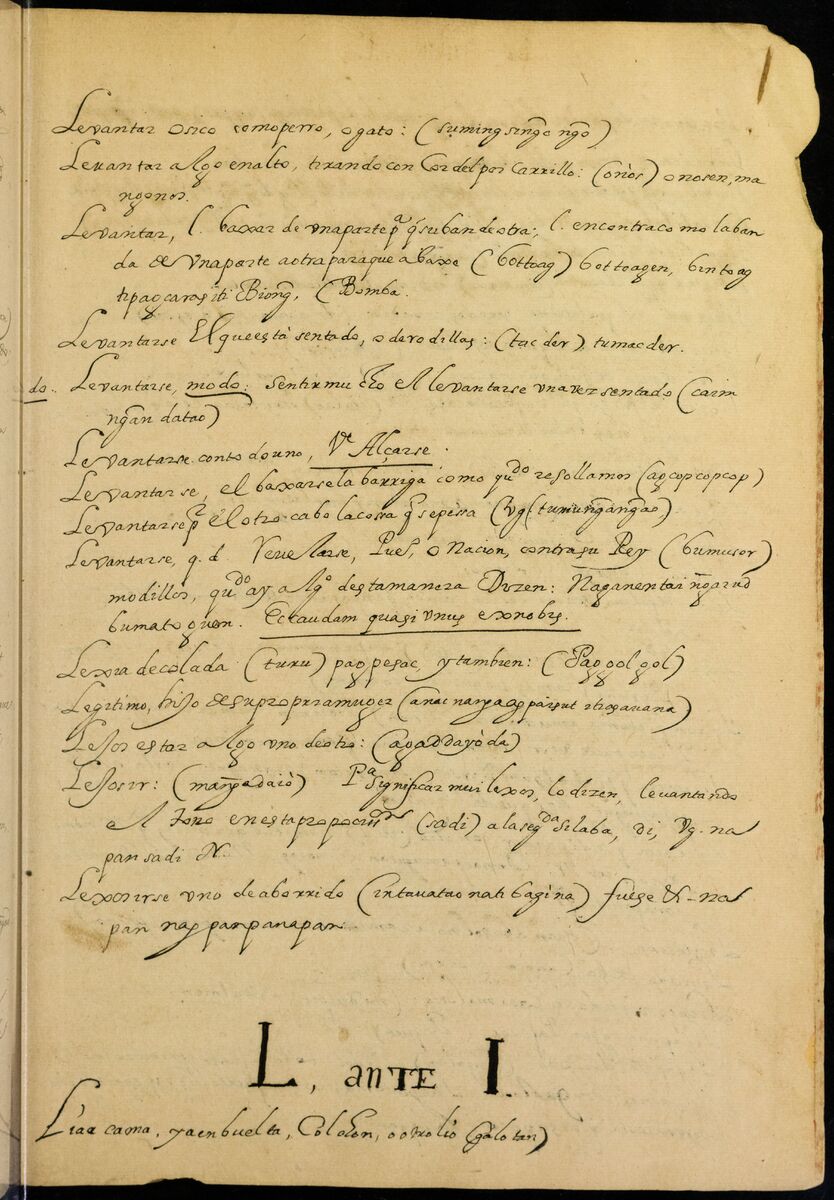 Levantar osico como perro, o gato: (suming singo ngo)
Levantar algo en alto, tirando con Cordel por Carrillo: (onòs) onosen, ma
ngonos.
Levantar, l. baxar de una parte pa. q̃ suban de otra; l. en contra como la ban
da de una parte a otra para que abaxe (bottoag) bottoagen, bintoag
ti pagcarasiti Biong, (Bomba.
Levantarse El que està sentado, o de rodillas: (tacder) tumacder.
do. Levantarse, modo: sentir mucho el levantarse una vez sentado (carin
ngan datao)
Levantarse contodo uno, Ve. Alçarse.
Levantarse, el baxarse la barriga como qudo resollamos (agcopcopcop)
Levantarse pr. el otro cabo la cosa q̃ se pissa (vg (tumungangngao)
Levantarse, q.d. Revelarse, Puel, o Nacion, contra su Rey (bumusor)
modillos, qudo ay algo desta manera Dizen:
bumatoguon. Ecce Adam quasi unus ex nobis.
Lexia de colada (turu) pagpesac, y tambien: (Paggolgol)
Legitimo, hijo de su propria muger
Lejos estar algo uno de otro: (agaddayòda)
Lejos ir: Pa significar mui lexos, lo dizen, levantando
el tono en esta propocion (sadi) a la segda silaba, di, Vg. na
pan sadi N.
Lexos irse uno de aborrido (intavatao nati bagina) fuese &. na
pan nagpanpanapan.
L, ANTE I.
Liar cama, ya enbuelta, Colchon, o otro lio (galotan)